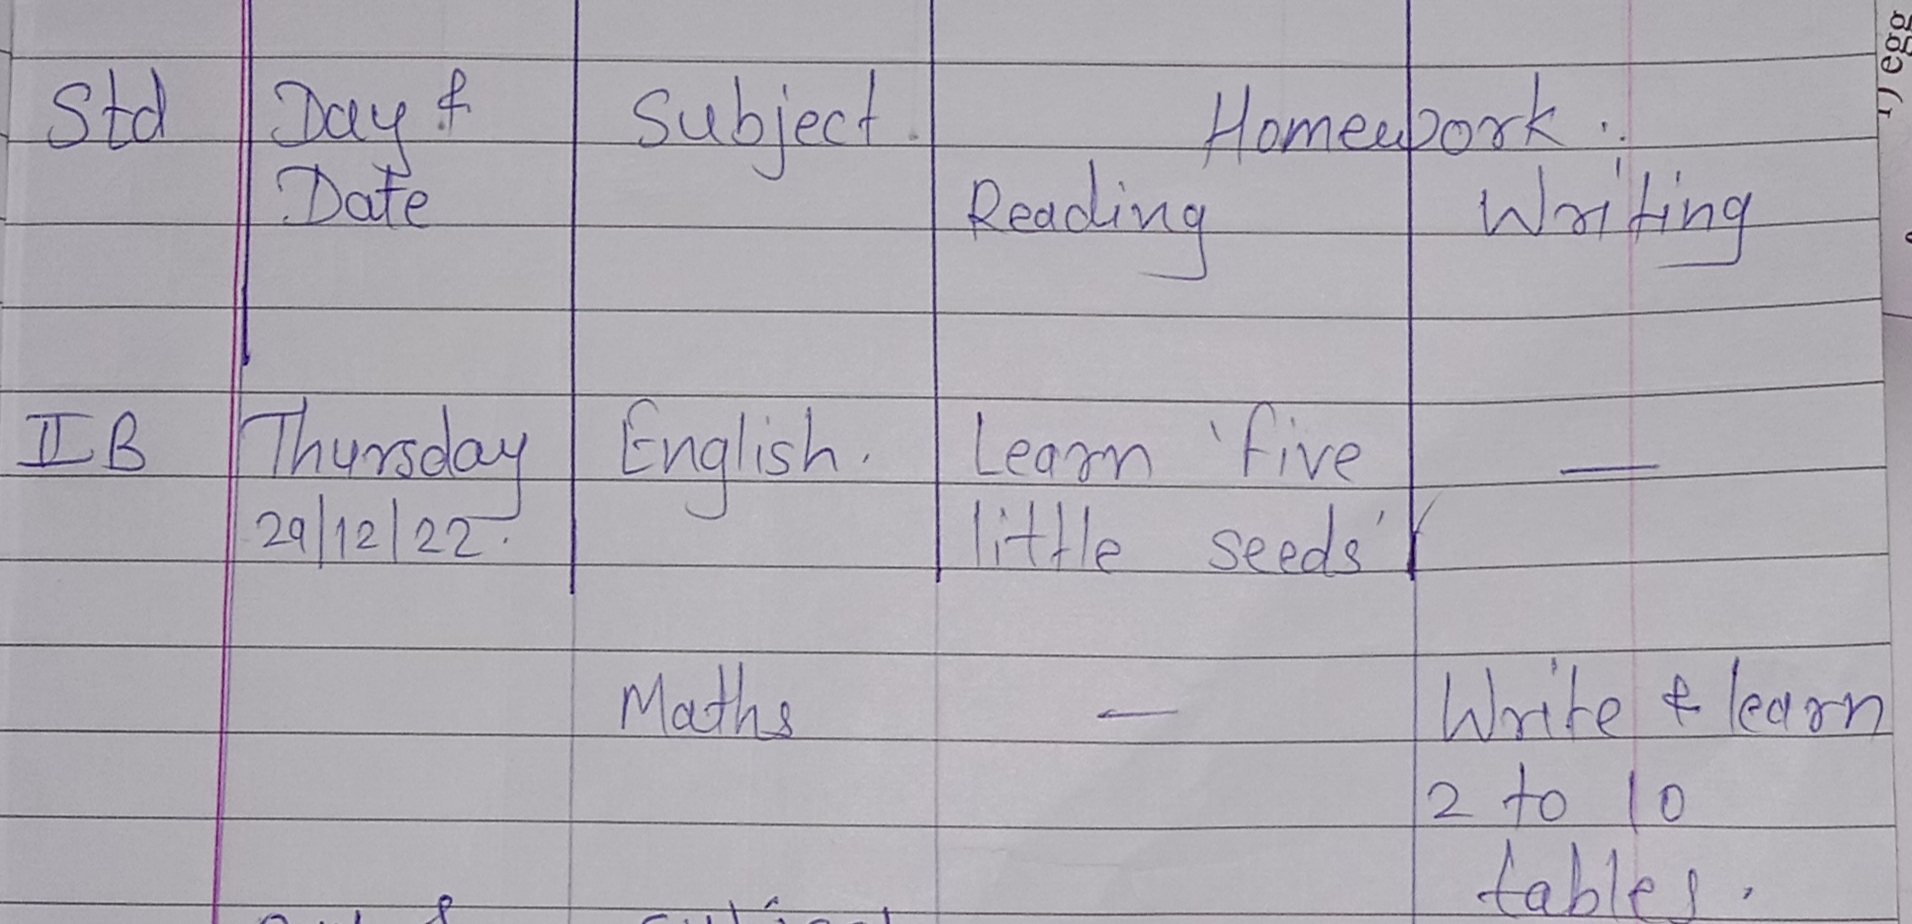 Std Day & Subject. Homework.
Date Reading Writing
II B Thursday English. Learn 'five —
29/12/22. little seeds'
Maths — Write & learn
2 to 10
tables.
1) egg